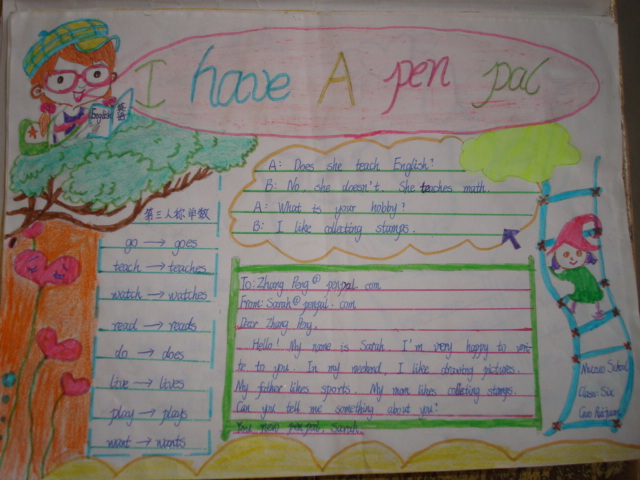 I have A pen pal
English 英语
A: Does she teach English?
B: No, she doesn't. She teaches math.
A: What is your hobby?
B: I like collecting stamps.
第三人称单数
go → goes
teach → teaches
watch → watches
read → reads
do → does
live → lives
play → plays
want → wants
To: Zhang Peng@penpal.com
From: Sarah@penpal.com
Dear Zhang Peng,
Hello! My name is Sarah. I'm very happy to wri-
te to you. In my weekend, I like drawing pictures.
My father likes sports. My mom likes collecting stamps.
Can you tell me something about you?
You new penpal, Sarah.
School
Class: Six